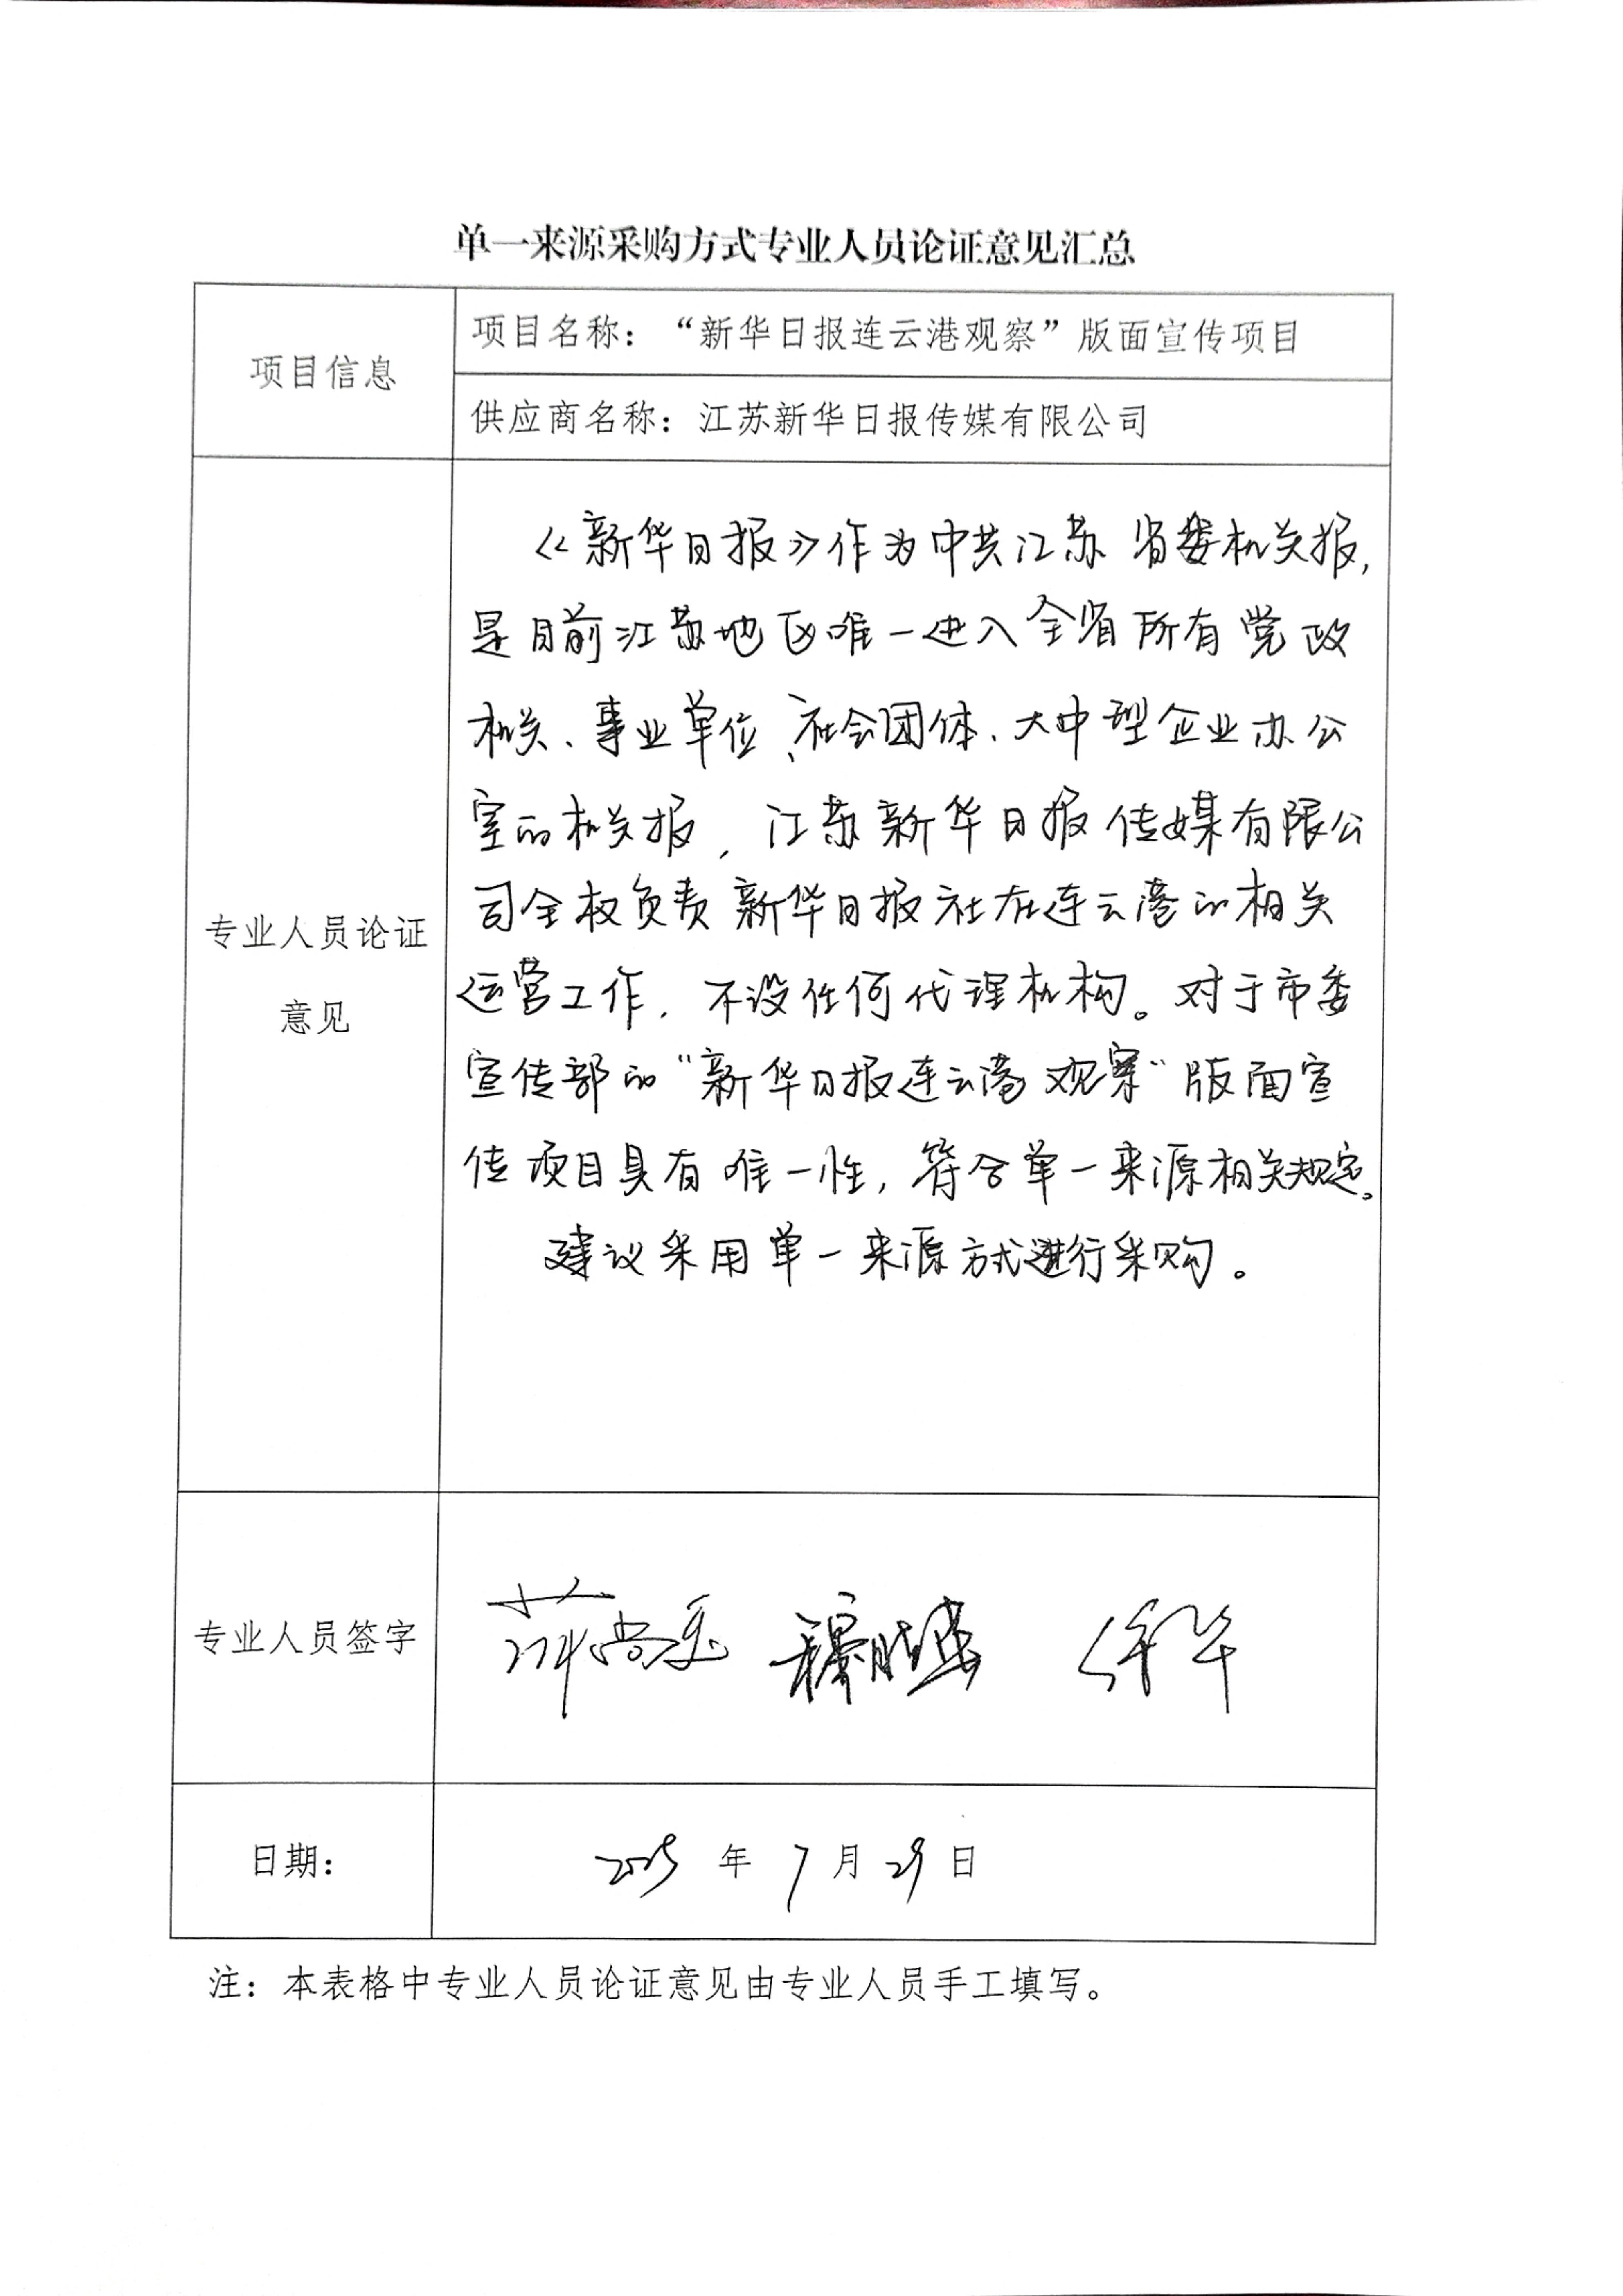 单一来源采购方式专业人员论证意见汇总
项目信息
项目名称：“新华日报连云港观察”版面宣传项目
供应商名称：江苏新华日报传媒有限公司
专业人员论证
意见
《新华日报》作为中共江苏省委机关报，
是目前江苏地区唯一进入全省所有党政
机关、事业单位、社会团体、大中型企业办公
室的机关报，江苏新华日报传媒有限公
司全权负责新华日报社在连云港的相关
运营工作，不设任何代理机构。对于市委
宣传部的“新华日报连云港观察”版面宣
传项目具有唯一性，符合单一来源相关规定。
建议采用单一来源方式进行采购。
专业人员签字
徐华
日期：
2025 年 7 月 29 日
注：本表格中专业人员论证意见由专业人员手工填写。